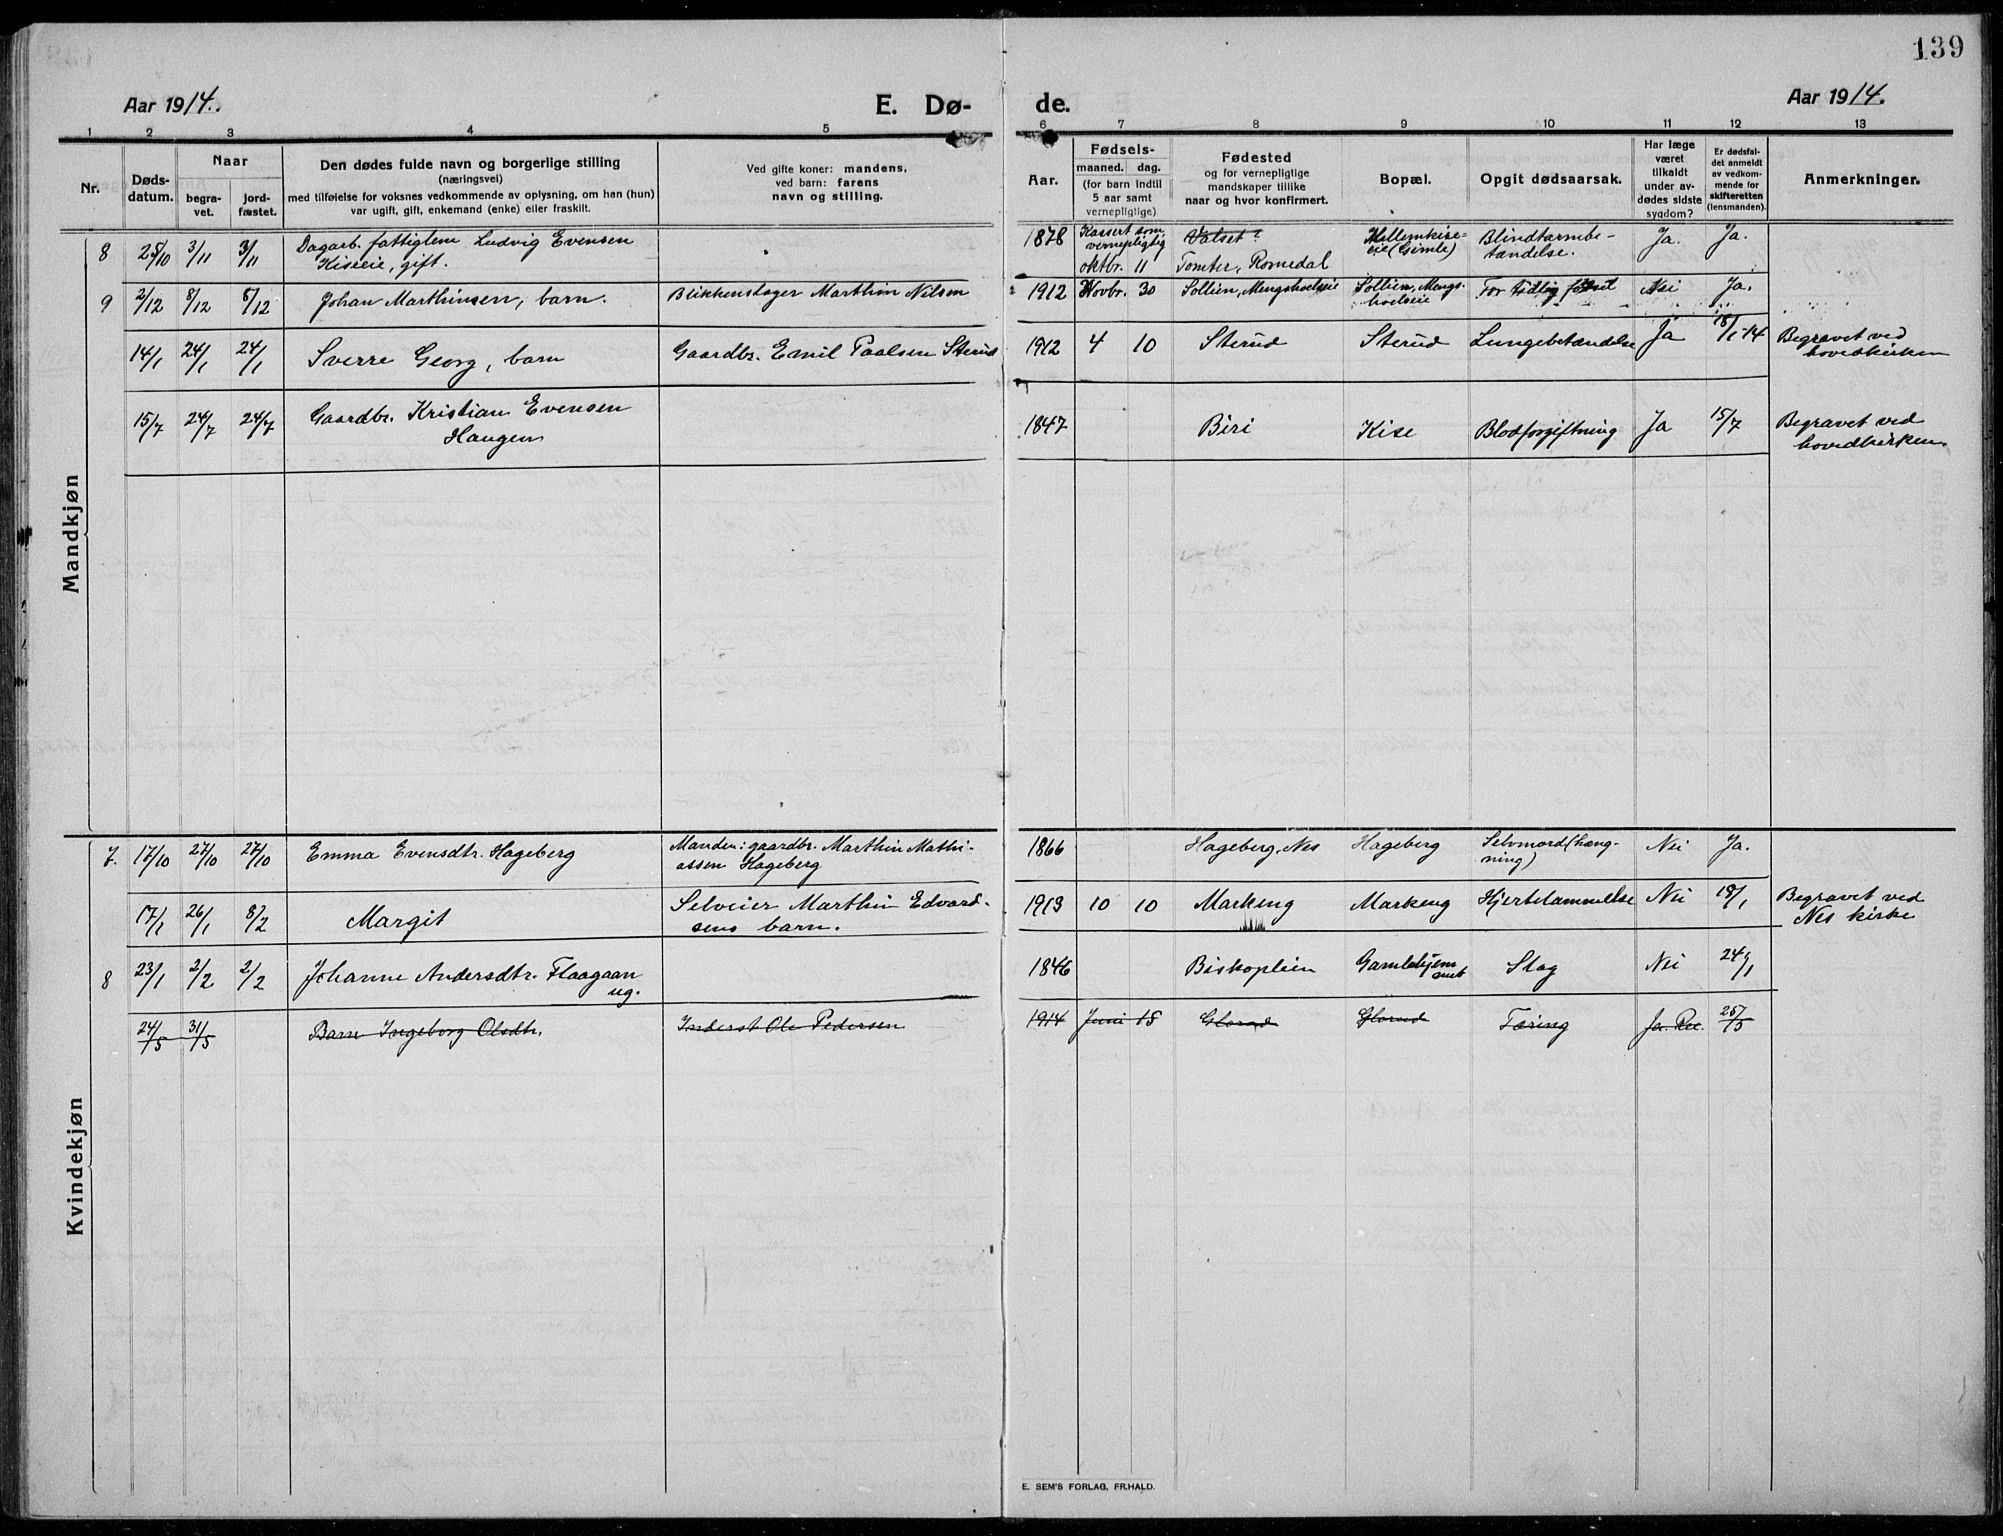 139
Aar 1914.
E. Dø-
de.
Aar 1914.
1 2 3 4 5 6 7 8 9 10 11 12 13
Nr.
Døds-
datum.
Naar
begra-
vet.
jord-
fæstet.
Den dødes fulde navn og borgerlige stilling
(næringsvei)
med tilføielse for voksnes vedkommende av oplysning, om han (hun)
var ugift, gift, enkemand (enke) eller fraskilt.
Ved gifte koner: mandens,
ved barn: farens
navn og stilling.
Aar.
Fødsels-
maaned. dag.
(for barn indtil
5 aar samt
vernepligtige)
Fødested
og for vernepligtige
mandskaper tillike
naar og hvor konfirmert.
Bopæl.
Opgit dødsaarsak.
Har læge
været
tilkaldt
under av-
dødes sidste
sygdom?
Er dødsfal-
det anmeldt
av vedkom-
mende for
skifteretten
(lensmanden).
Anmerkninger.
Mandkjøn
8 25/10 3/11 3/11 Dagarb. fattiglem Ludvig Evensen
Kiseeie, gift.
1878 Kassert som
vernepligtig
oktbr. 11 Valset?
Tomter, Romedal Mellemkise-
eie (Gimle) Blindtarmbe-
tændelse. Ja. Ja.
9 2/12 8/12 8/12 Johan Marthinsen, barn. Blikkenslager Marthin Nilsen 1912 Novbr. 30 Sollien, Mengshoelseie Sollien, Mengs-
hoelseie For tidlig født Nei Ja.
14/1 24/1 24/1 Sverre Georg, barn Gaardbr. Emil Paalsen Sterud 1912 4 10 Sterud Sterud Lungebetændelse Ja 18/1-14 Begravet ved
hovedkirken
15/7 24/7 24/7 Gaardbr. Kristian Evensen
Haugen 1847 Biri Kise Blodforgiftning Ja 15/7 Begravet ved
hovedkirken.
Kvindekjøn
7. 17/10 27/10 27/10 Emma Evensdtr. Hageberg Manden: gaardbr. Marthin Mathi-
assen Hageberg 1866 Hageberg, Nes Hageberg Selvmord (hæng-
ning) Nei Ja.
17/1 26/1 8/2 Margit Selveier Marthin Edvard-
sens barn. 1913 10 10 Markeng Markeng Hjertelammelse Nei 18/1 Begravet ved
Nes kirke
8 23/1 2/2 2/2 Johanne Andersdtr. Flaagaan
ug. 1846 Biskoplien Gamlehjem
Slag Nei 24/1
24/5 31/5 Barn Ingeborg Olsdtr. Inderst Ole Pedersen 1914 Juni 18 Glorud Glorud Tæring Ja. 25/5
E. SEM'S FORLAG, FR.HALD.